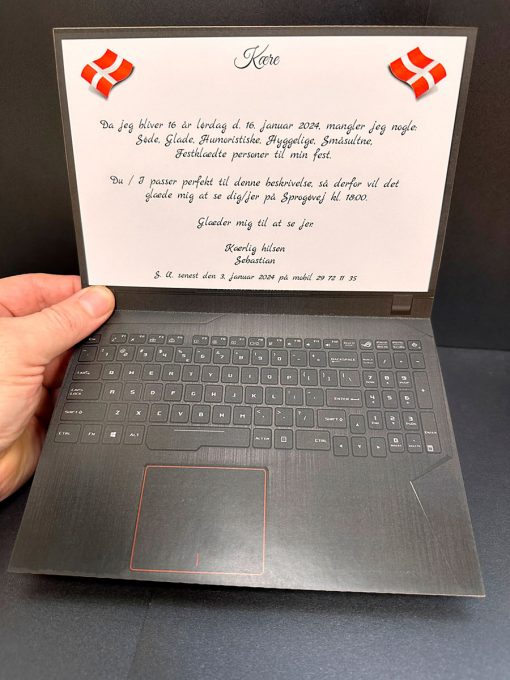 Kære
Da jeg bliver 16 år lørdag d. 16. januar 2024, mangler jeg nogle;
Søde, Glade, Humoristiske, Hyggelige, Småsultne,
Festklædte personer til min fest.
Du / I passer perfekt til denne beskrivelse, så derfor vil det
glæde mig at se dig/jer på Sprogøvej kl. 18:00.
Glæder mig til at se jer.
Kærlig hilsen
Sebastian
S. U. senest den 3. januar 2024 på mobil 29 72 11 35
BACKSPACE
Q W E R T Y U I O P
CAPS LOCK A S D F G H J K L ENTER
SHIFT Z X C V B N M SHIFT
CTRL FN ALT ALT GR CTRL ENTER